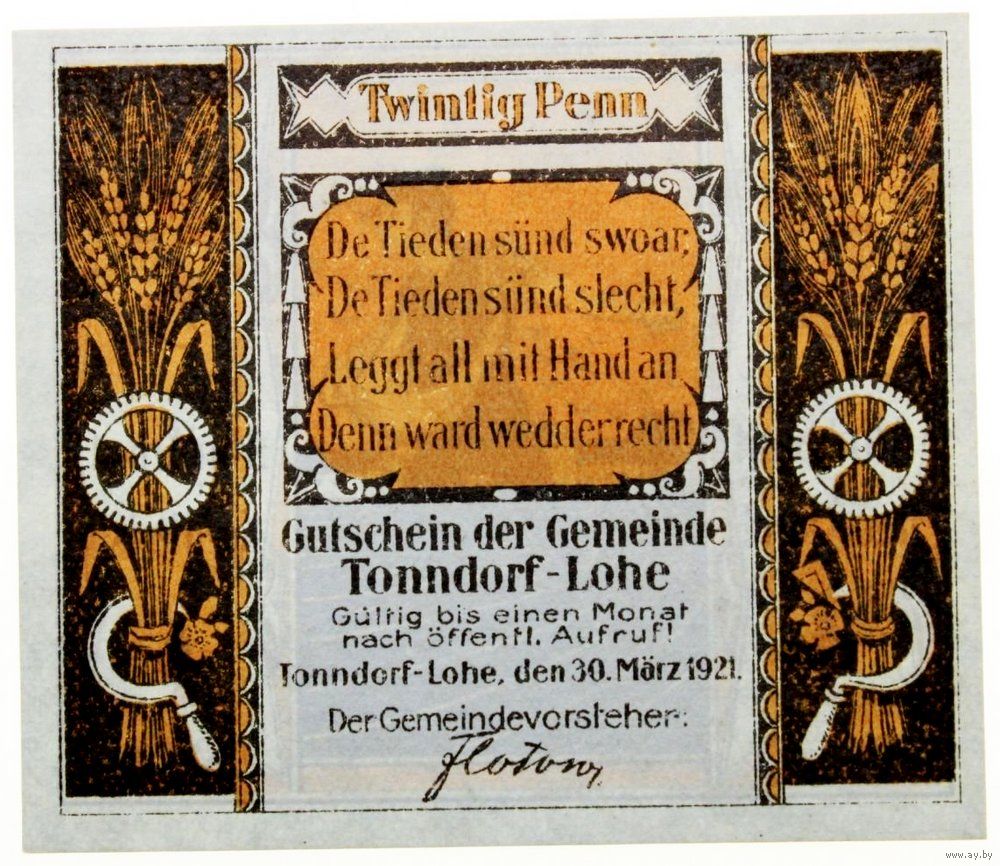 Twintig Penn
De Tieden sünd swoar,
De Tieden sünd slecht,
Leggt all mit Hand an
Denn ward wedder recht
Gutschein der Gemeinde
Tonndorf-Lohe
Gültig bis einen Monat
nach öffentl. Aufruf!
Tonndorf-Lohe, den 30. März 1921.
Der Gemeindevorsteher:
www.ay.by